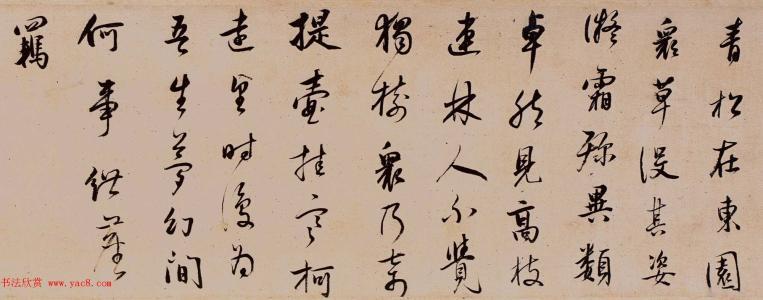 青松在東園
衆草没其姿
凝霜殄異類
卓然見高枝
連林人不覺
獨樹衆乃奇
提壺挂寒柯
遠望時復為
吾生夢幻間
何事紲塵
羈
书法欣赏 www.yac8.com